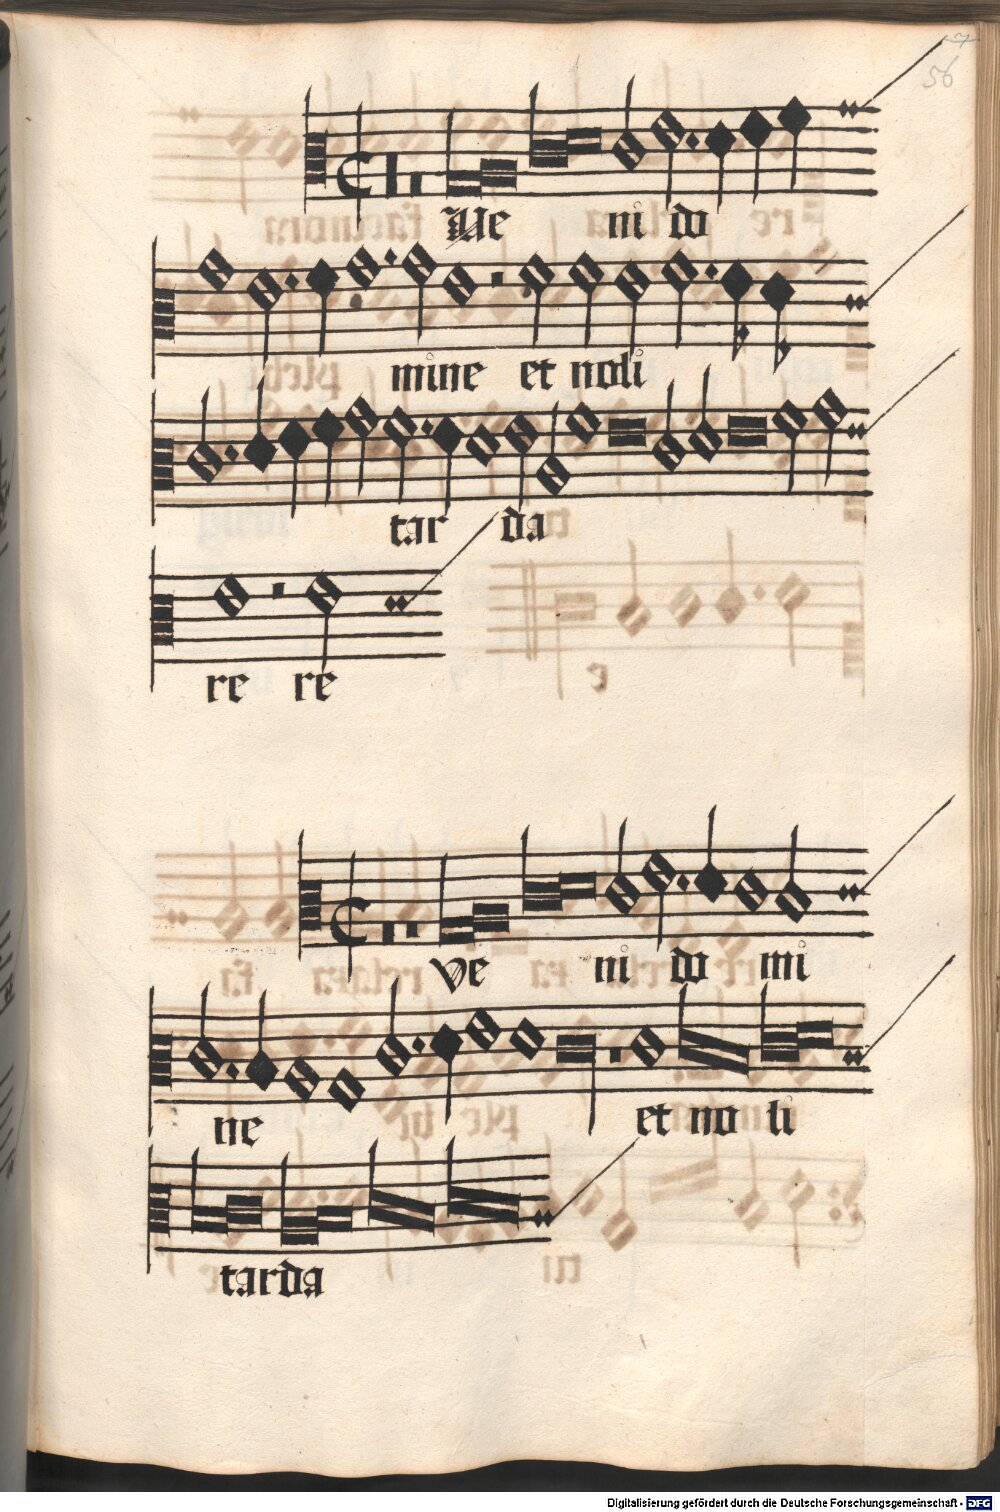 56
Ve ni do
mine et noli
tar da
re re
ve ni do mi
ne et no li
tarda
Digitalisierung gefördert durch die Deutsche Forschungsgemeinschaft - DFG